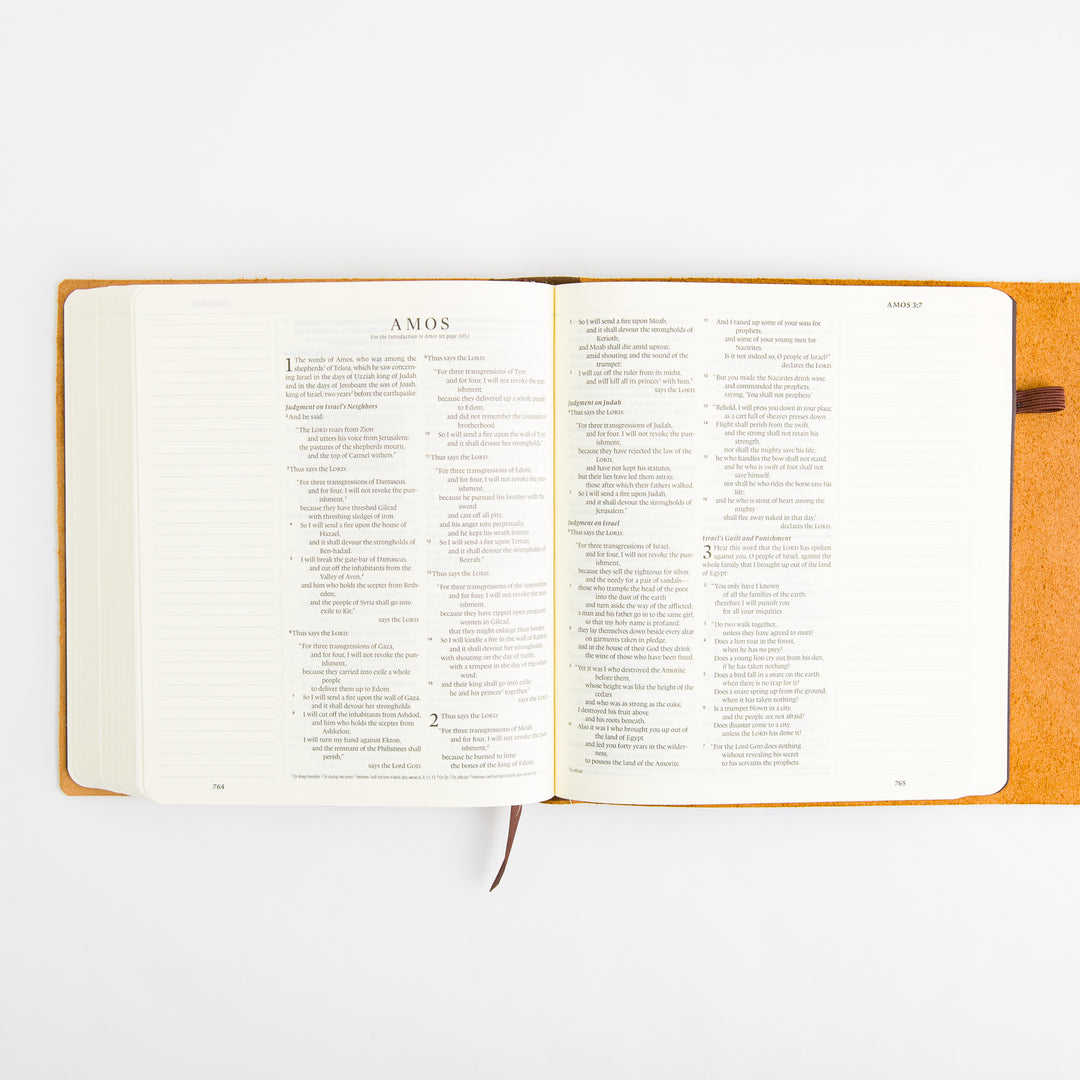 AMOS
For the Introduction to Amos see page 1053
1 The words of Amos, who was among the
shepherds¹ of Tekoa, which he saw concern-
ing Israel in the days of Uzziah king of Judah
and in the days of Jeroboam the son of Joash,
king of Israel, two years² before the earthquake.
Judgment on Israel's Neighbors
² And he said:
"The LORD roars from Zion
and utters his voice from Jerusalem;
the pastures of the shepherds mourn,
and the top of Carmel withers."
³ Thus says the LORD:
"For three transgressions of Damascus,
and for four, I will not revoke the pun-
ishment,³
because they have threshed Gilead
with threshing sledges of iron.
⁴ So I will send a fire upon the house of
Hazael,
and it shall devour the strongholds of
Ben-hadad.
⁵ I will break the gate-bar of Damascus,
and cut off the inhabitants from the
Valley of Aven,⁴
and him who holds the scepter from Beth-
eden;
and the people of Syria shall go into
exile to Kir,"
says the LORD.
⁶ Thus says the LORD:
"For three transgressions of Gaza,
and for four, I will not revoke the pun-
ishment,
because they carried into exile a whole
people
to deliver them up to Edom.
⁷ So I will send a fire upon the wall of Gaza,
and it shall devour her strongholds.
⁸ I will cut off the inhabitants from Ashdod,
and him who holds the scepter from
Ashkelon;
I will turn my hand against Ekron,
and the remnant of the Philistines shall
perish,"
says the Lord GOD.
⁹ Thus says the LORD:
"For three transgressions of Tyre,
and for four, I will not revoke the pun-
ishment,
because they delivered up a whole people
to Edom,
and did not remember the covenant of
brotherhood.
¹⁰ So I will send a fire upon the wall of Tyre,
and it shall devour her strongholds."
¹¹ Thus says the LORD:
"For three transgressions of Edom,
and for four, I will not revoke the pun-
ishment,
because he pursued his brother with the
sword
and cast off all pity,
and his anger tore perpetually,
and he kept his wrath forever.
¹² So I will send a fire upon Teman,
and it shall devour the strongholds of
Bozrah."
¹³ Thus says the LORD:
"For three transgressions of the Ammonites,
and for four, I will not revoke the pun-
ishment,
because they have ripped open pregnant
women in Gilead,
that they might enlarge their border.
¹⁴ So I will kindle a fire in the wall of Rabbah,
and it shall devour her strongholds,
with shouting on the day of battle,
with a tempest in the day of the whirl-
wind;
¹⁵ and their king shall go into exile,
he and his princes⁵ together,"
says the LORD.
2 Thus says the LORD:
"For three transgressions of Moab,
and for four, I will not revoke the pun-
ishment,⁶
because he burned to lime
the bones of the king of Edom.
¹ Or sheep breeders ² Or during two years ³ Hebrew I will not turn it back; also verses 6, 9, 11, 13 ⁴ Or On ⁵ Or officials ⁶ Hebrew I will not turn it back; also verses 4, 6
764
AMOS 3:7
² So I will send a fire upon Moab,
and it shall devour the strongholds of
Kerioth,
and Moab shall die amid uproar,
amid shouting and the sound of the
trumpet;
³ I will cut off the ruler from its midst,
and will kill all its princes¹ with him,"
says the LORD.
Judgment on Judah
⁴ Thus says the LORD:
"For three transgressions of Judah,
and for four, I will not revoke the pun-
ishment,
because they have rejected the law of the
LORD,
and have not kept his statutes,
but their lies have led them astray,
those after which their fathers walked.
⁵ So I will send a fire upon Judah,
and it shall devour the strongholds of
Jerusalem."
Judgment on Israel
⁶ Thus says the LORD:
"For three transgressions of Israel,
and for four, I will not revoke the pun-
ishment,
because they sell the righteous for silver,
and the needy for a pair of sandals—
⁷ those who trample the head of the poor
into the dust of the earth
and turn aside the way of the afflicted;
a man and his father go in to the same girl,
so that my holy name is profaned;
⁸ they lay themselves down beside every altar
on garments taken in pledge,
and in the house of their God they drink
the wine of those who have been fined.
⁹ "Yet it was I who destroyed the Amorite
before them,
whose height was like the height of the
cedars
and who was as strong as the oaks;
I destroyed his fruit above
and his roots beneath.
¹⁰ Also it was I who brought you up out of
the land of Egypt
and led you forty years in the wilder-
ness,
to possess the land of the Amorite.
¹ Or officials
¹¹ And I raised up some of your sons for
prophets,
and some of your young men for
Nazirites.
Is it not indeed so, O people of Israel?"
declares the LORD.
¹² "But you made the Nazirites drink wine,
and commanded the prophets,
saying, 'You shall not prophesy.'
¹³ "Behold, I will press you down in your place,
as a cart full of sheaves presses down.
¹⁴ Flight shall perish from the swift,
and the strong shall not retain his
strength,
nor shall the mighty save his life;
¹⁵ he who handles the bow shall not stand,
and he who is swift of foot shall not
save himself,
nor shall he who rides the horse save his
life;
¹⁶ and he who is stout of heart among the
mighty
shall flee away naked in that day,"
declares the LORD.
Israel's Guilt and Punishment
3 Hear this word that the LORD has spoken
against you, O people of Israel, against the
whole family that I brought up out of the land
of Egypt:
² "You only have I known
of all the families of the earth;
therefore I will punish you
for all your iniquities.
³ "Do two walk together,
unless they have agreed to meet?
⁴ Does a lion roar in the forest,
when he has no prey?
Does a young lion cry out from his den,
if he has taken nothing?
⁵ Does a bird fall in a snare on the earth,
when there is no trap for it?
Does a snare spring up from the ground,
when it has taken nothing?
⁶ Is a trumpet blown in a city,
and the people are not afraid?
Does disaster come to a city,
unless the LORD has done it?
⁷ "For the Lord GOD does nothing
without revealing his secret
to his servants the prophets.
765